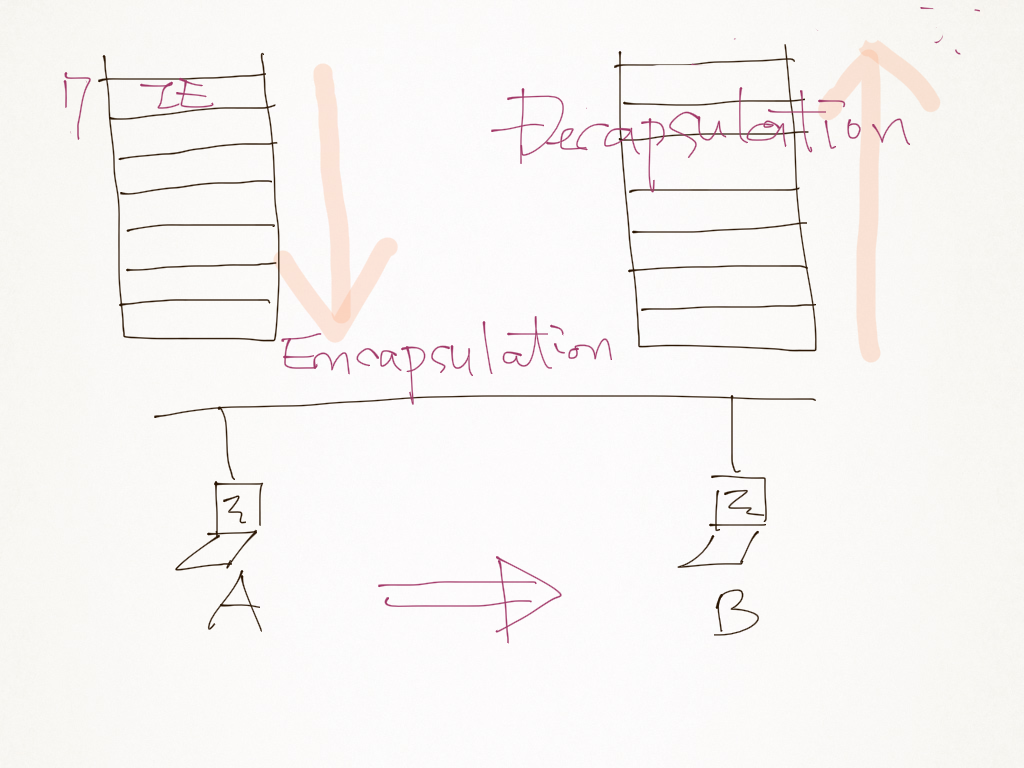 7 IE
Decapsulation
Encapsulation
A B